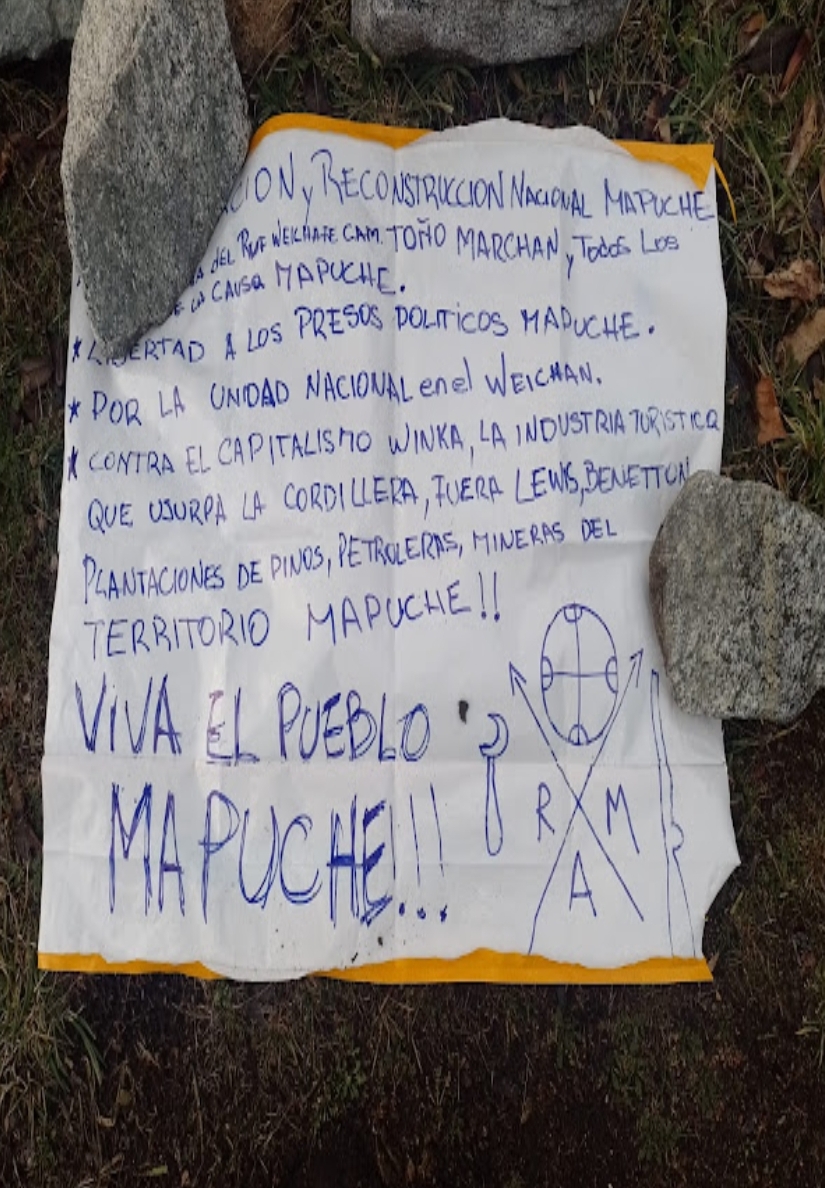 CION y RECONSTRUCCION NACIONAL MAPUCHE
DEL PUF WEICHAFE CAM. TOÑO MARCHAN, y TODOS LOS
E LA CAUSA MAPUCHE.
* LIBERTAD A LOS PRESOS POLITICOS MAPUCHE.
* POR LA UNIDAD NACIONAL en el WEICHAN.
* CONTRA EL CAPITALISMO WINKA, LA INDUSTRIA TURISTICA
QUE USURPA LA CORDILLERA, FUERA LEWIS, BENETTON
PLANTACIONES DE PINOS, PETROLERAS, MINERAS DEL
TERRITORIO MAPUCHE!!
VIVA EL PUEBLO
MAPUCHE!!!
R M
A